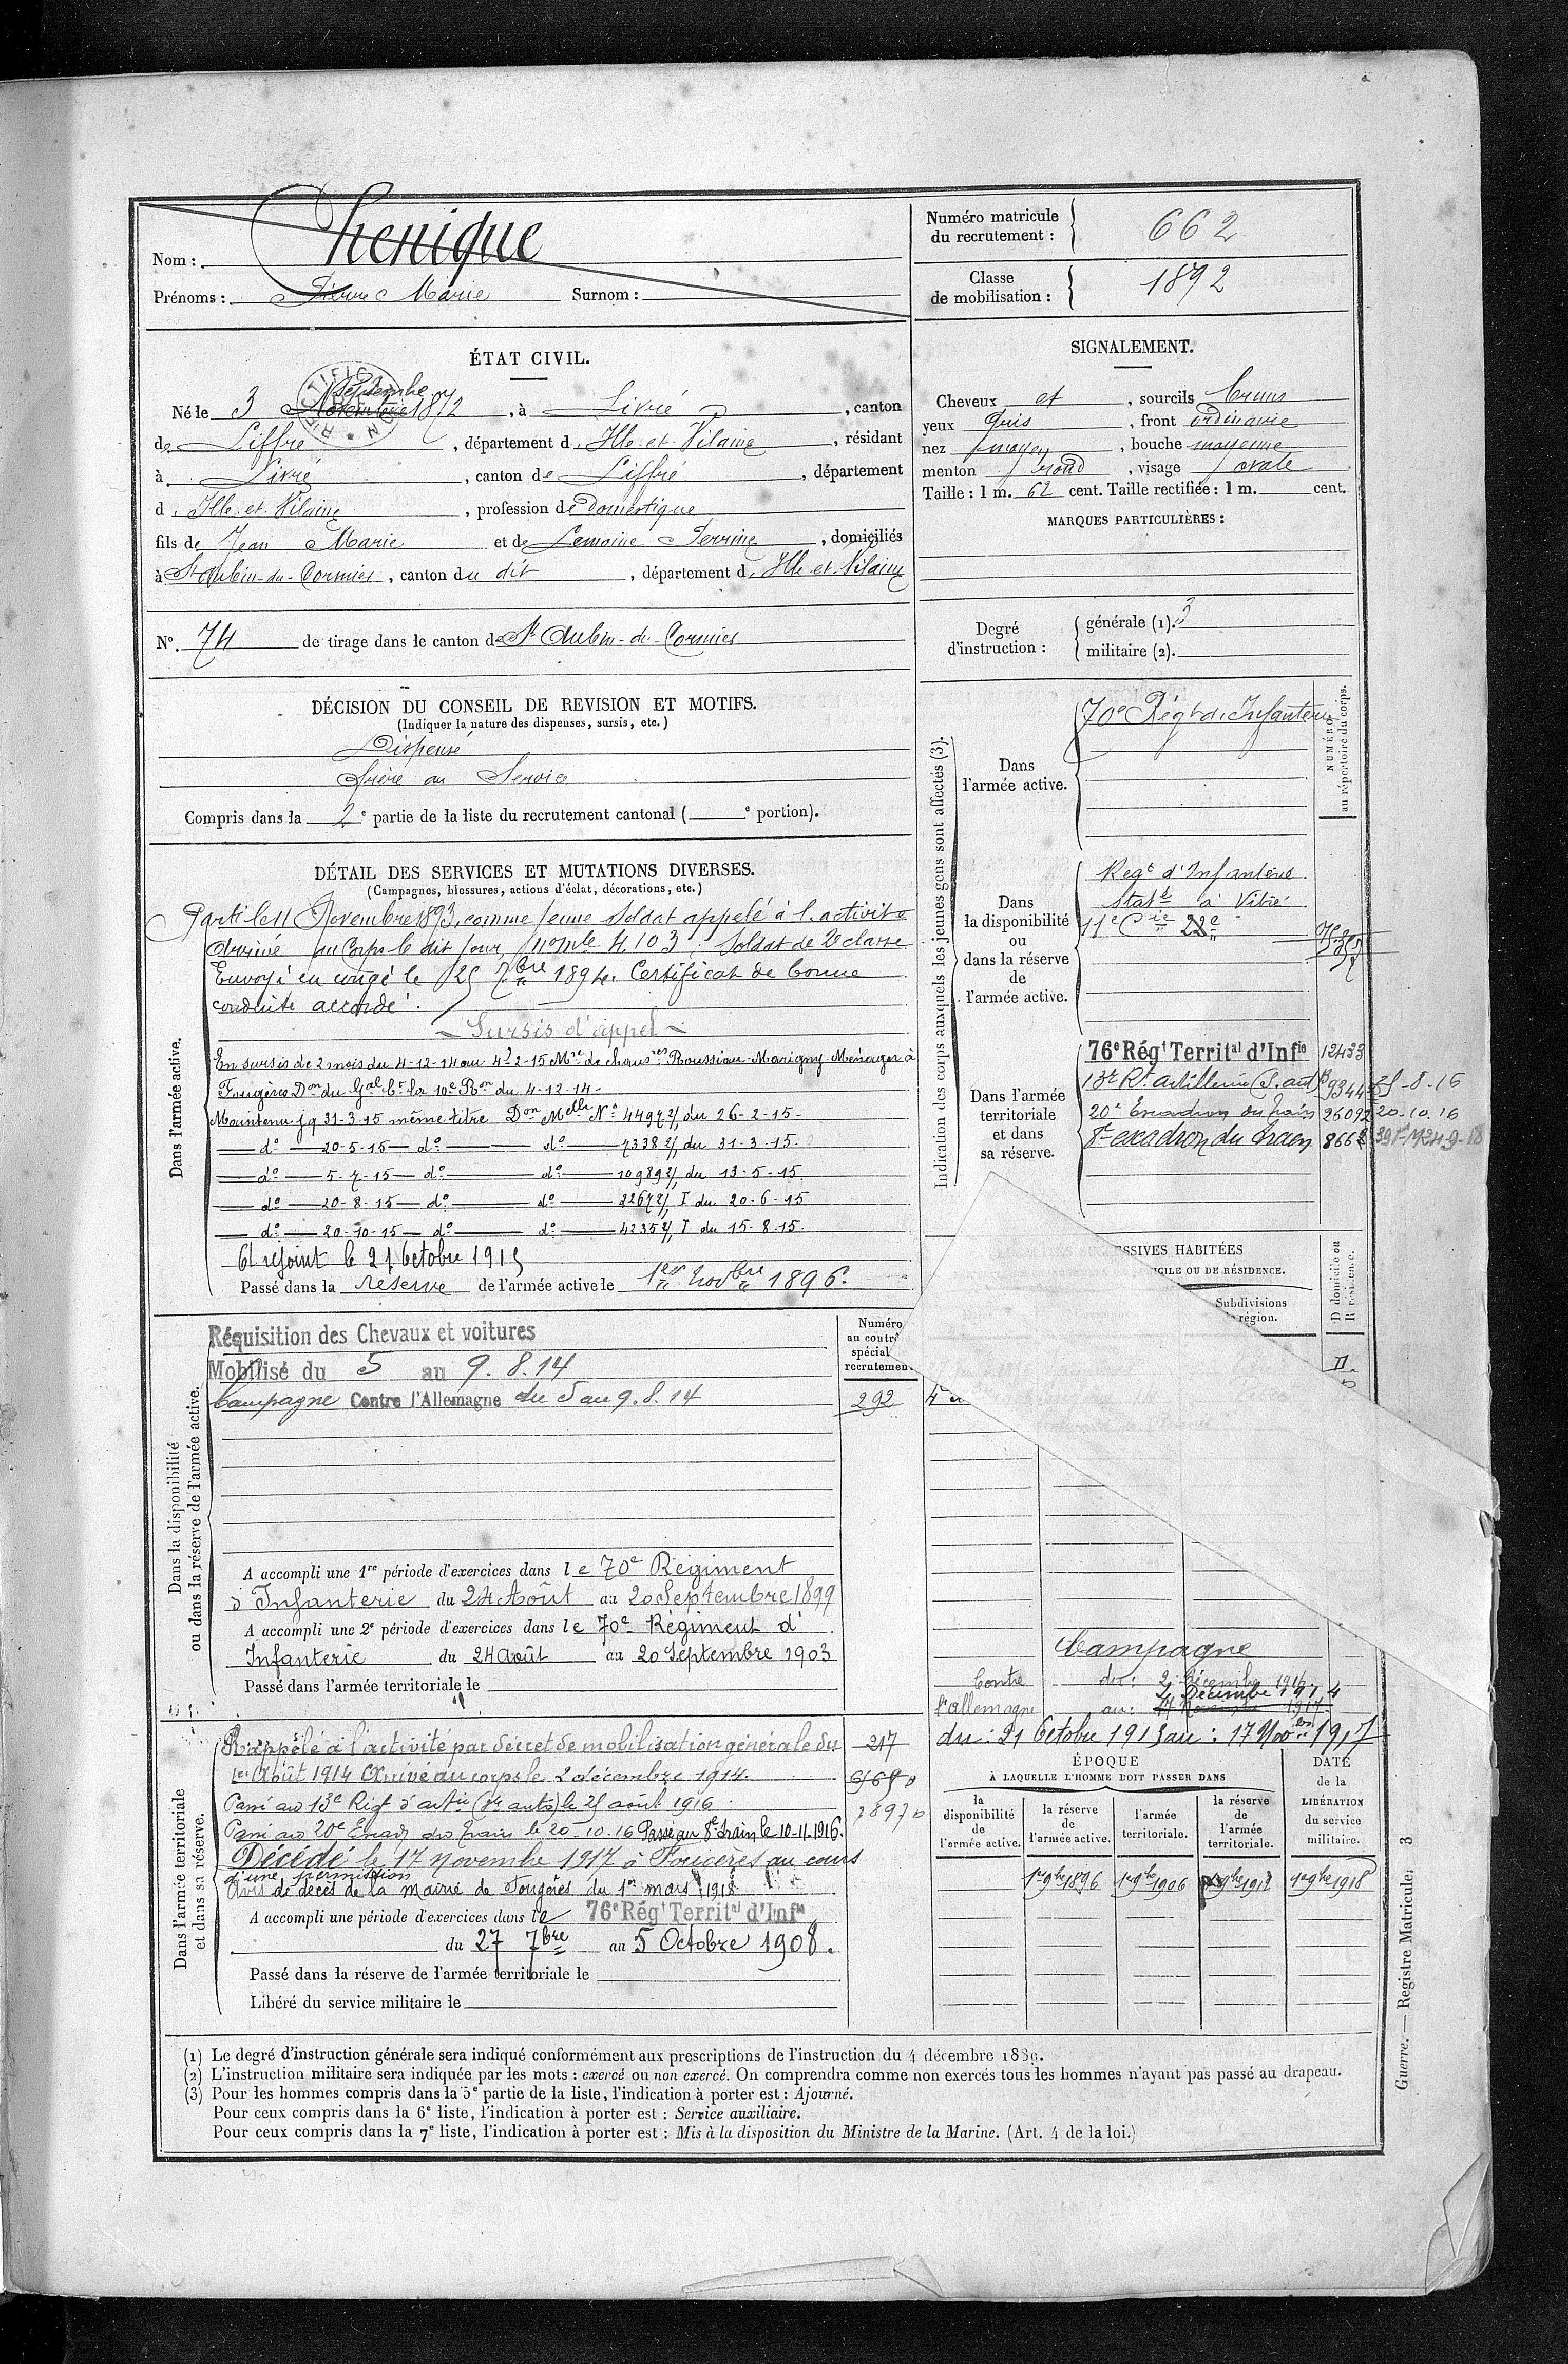 Nom : Chenique
Prénoms : Pierre Marie Surnom :
Numéro matricule du recrutement : 662
Classe de mobilisation : 1892
ÉTAT CIVIL.
Né le 3 Novembre Septembre 1872, à Livré, canton
de Liffré, département d'Ille-et-Vilaine, résidant
à Livré, canton de Liffré, département
d'Ille-et-Vilaine, profession de Domestique
fils de Jean Marie et de Lemoine Perrine, domiciliés
à St Aubin-du-Cormier, canton du dit, département d'Ille-et-Vilaine
N°. 74 de tirage dans le canton de St Aubin-du-Cormier
SIGNALEMENT.
Cheveux et, sourcils bruns
yeux gris, front ordinaire
nez moyen, bouche moyenne
menton rond, visage ovale
Taille : 1 m. 62 cent. Taille rectifiée : 1 m. cent.
MARQUES PARTICULIÈRES :
Degré d'instruction : générale (1). 3
militaire (2).
DÉCISION DU CONSEIL DE REVISION ET MOTIFS.
(Indiquer la nature des dispenses, sursis, etc.)
Dispensé
frère au Service
Compris dans la 2e partie de la liste du recrutement cantonal ( e portion).
DÉTAIL DES SERVICES ET MUTATIONS DIVERSES.
(Campagnes, blessures, actions d'éclat, décorations, etc.)
Dans l'armée active.
Parti le 11 Novembre 1893, comme jeune Soldat appelé à l'activité
Arrivé au Corps le dit jour, no mle 4103 Soldat de 2e classe
Envoyé en congé le 25 7bre 1894. Certificat de bonne
conduite accordé.
Sursis d'appel
En sursis de 2 mois du 4-12-14 au 4-2-15 Mre de chaussres Roussiau-Marigny-Ménager à
Fougères Don du Gal Ct la 10e Ron du 4-12-14-
Maintenu jq 31-3-15 même titre Don Melle No 4497 2/ du 26-2-15-
do 20-5-15 do do 7338 2/ du 31-3-15.
do 5-7-15 do do 10989 2/ du 13-5-15
do 20-8-15 do do 2267 2/ I du 20-6-15
do 20-10-15 do do 4235 2/ I du 15-8-15.
A rejoint le 21 Octobre 1915
Passé dans la réserve de l'armée active le 1er Novbre 1896.
Indication des corps auxquels les jeunes gens sont affectés (3).
NUMÉRO au répertoire du corps.
Dans l'armée active.
70e Régt d'Infanterie
Dans la disponibilité ou dans la réserve de l'armée active.
Regt d'Infanterie
Statné à Vitré
11e Cie 22e
Dans l'armée territoriale et dans sa réserve.
76e Régt Territal d'Infie 12433
13e Rt artillerie (S. aut) 9344 25-8-16
20e Escadron du train 26092 20.10.16
8e escadron du train 8662
SSIVES HABITÉES
ICILE OU DE RÉSIDENCE.
Subdivisions
région.
D domicile ou
R résidence.
D.
Dans la disponibilité ou dans la réserve de l'armée active.
Réquisition des Chevaux et voitures
Mobilisé du 5 au 9.8.14
Campagne Contre l'Allemagne du 5 au 9.8.14
Numéro
au contrô
spécial
recrutemen
292
A accompli une 1re période d'exercices dans le 70e Régiment
d'Infanterie du 24 Août au 20 Septembre 1899
A accompli une 2e période d'exercices dans le 70e Régiment d'
Infanterie du 24 Août au 20 Septembre 1903
Passé dans l'armée territoriale le
Campagne
Contre du : 2 Décembre 1914
4 Décembre 1914
l'allemagne au : 17 Novembre 1917
du : 21 Octobre 1915 au : 17 Nov bre 1917
Dans l'armée territoriale et dans sa réserve.
Rappelé à l'activité par décret de mobilisation générale du
1er Août 1914 Arrivé au corps le 2 décembre 1914.
Passé au 13e Rigt d'artie (Sce auto) le 25 août 1916
Passé au 20e Escad. du train le 20-10.16 Passé au 8e train le 10-11-1916.
Décédé le 17 novembre 1917 à Fougères au cours
d'une permission
Avis de décès de la mairie de Fougères du 1er mars 1918
217
A accompli une période d'exercices dans le 76e Régt Territal d'Infie
du 27 7bre au 5 Octobre 1908.
Passé dans la réserve de l'armée territoriale le
Libéré du service militaire le
ÉPOQUE
À LAQUELLE L'HOMME DOIT PASSER DANS
la disponibilité de l'armée active.
la réserve de l'armée active.
l'armée territoriale.
la réserve de l'armée territoriale.
DATE de la LIBÉRATION du service militaire.
1er 9bre 1896 1er 9bre 1906 1er 9bre 1912 1er 9bre 1918
(1) Le degré d'instruction générale sera indiqué conformément aux prescriptions de l'instruction du 4 décembre 1889.
(2) L'instruction militaire sera indiquée par les mots : exercé ou non exercé. On comprendra comme non exercés tous les hommes n'ayant pas passé au drapeau.
(3) Pour les hommes compris dans la 5e partie de la liste, l'indication à porter est : Ajourné.
Pour ceux compris dans la 6e liste, l'indication à porter est : Service auxiliaire.
Pour ceux compris dans la 7e liste, l'indication à porter est : Mis à la disposition du Ministre de la Marine. (Art. 4 de la loi.)
Guerre. — Registre Matricule. 3